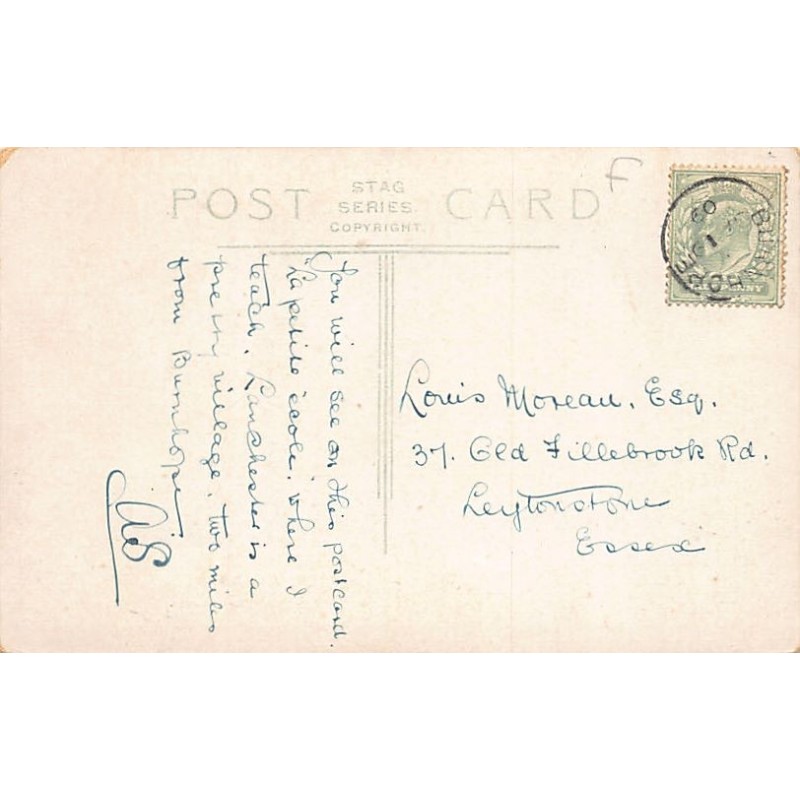 POST CARD
STAG
SERIES.
COPYRIGHT.
F
BURNHOPE
09
HALFPENNY
You will see on this postcard.
"La petite école" where I
teach. Lanchester is a
pretty village, two miles
from Burnhope
AS
Louis Moreau. Esq.
37. Old Fillebrook Rd.
Leytonstone
Essex